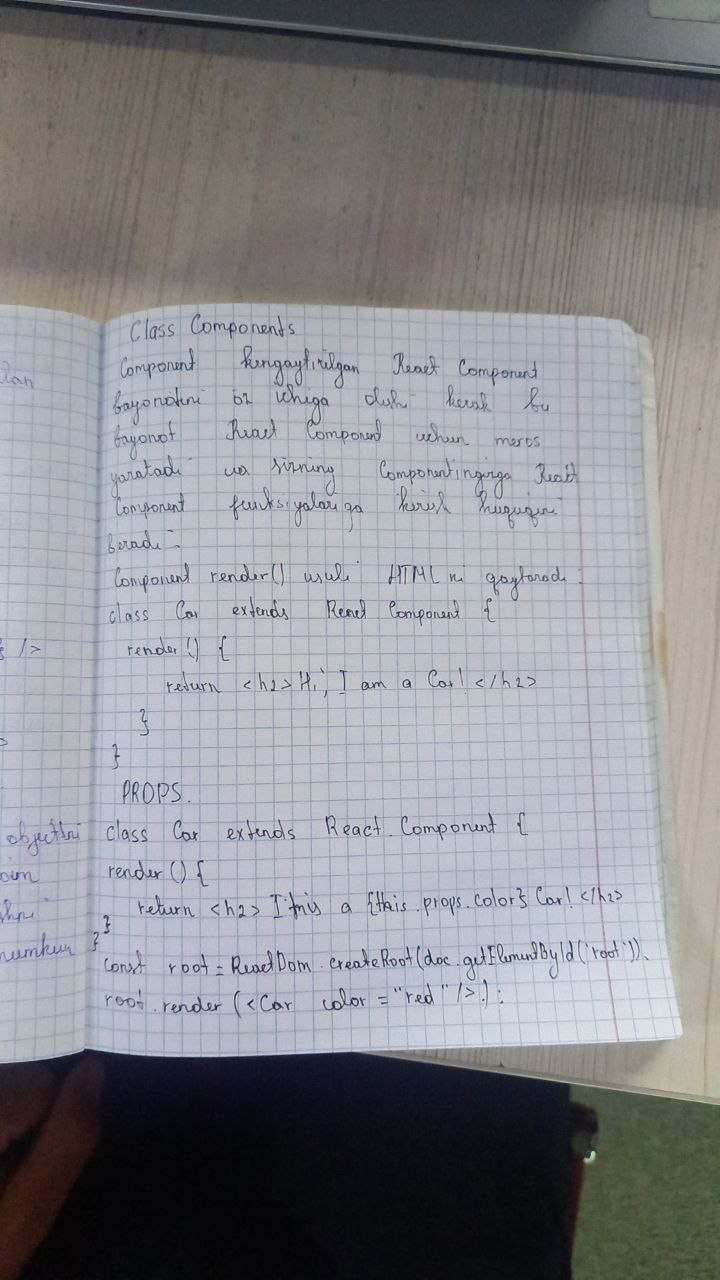 lan
} />
objectni
mumkin
Class Components
Component kengaytirilgan React Component
bayonotini o'z ichiga olishi kerak bu
bayonot React Component uchun meros
yaratadi va sizning Componentingizga React
Component funksiyalariga kirish huquqini
beradi.
Component render() usuli HTML ni qaytaradi:
class Car extends React Component {
render() {
return <h2> Hi, I am a Car! </h2>
}
}
PROPS.
class Car extends React.Component {
render() {
return <h2> I a {this.props.color} Car! </h2>
}
}
const root = ReactDom.createRoot(doc.getElementById('root')).
root.render (<Car color = "red" />);